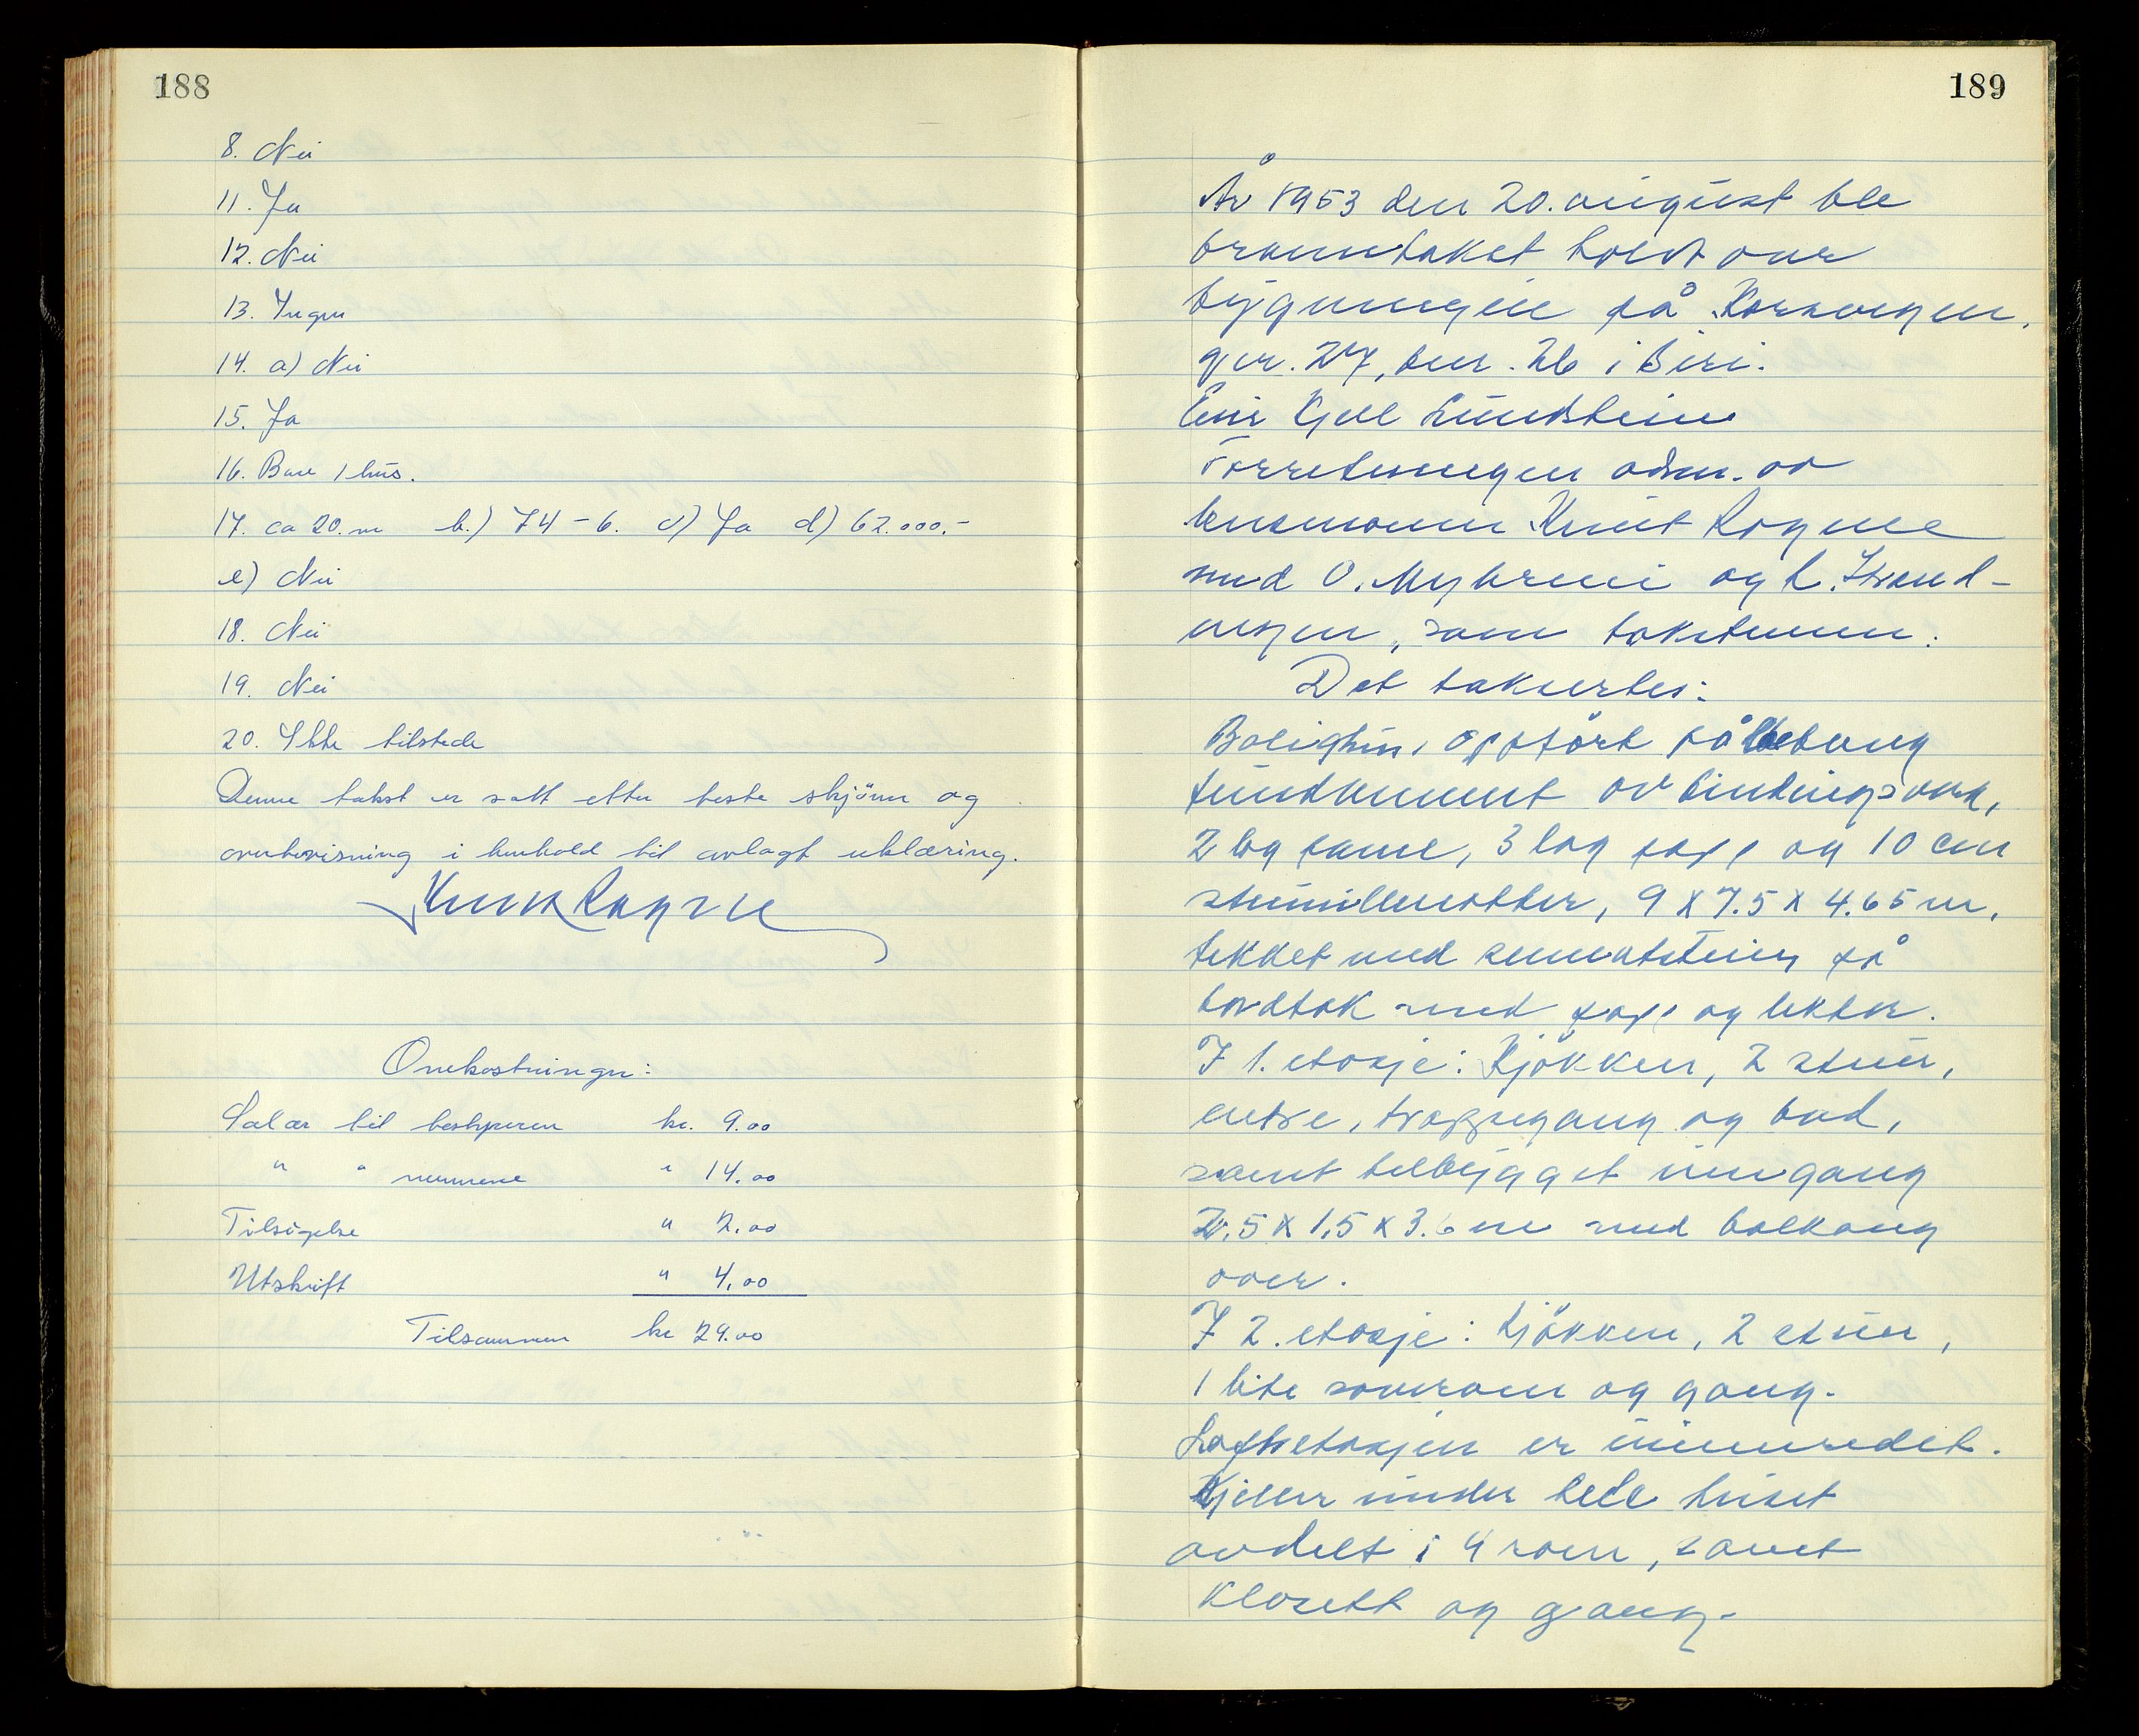 188
8. Nei
11. Ja
12. Nei
13. Ingen
14. a) Nei
15. Ja
16. Bare 1 hus.
17. ca 20. m b.) 74 - 6. c) Ja d) 62.000.-
e) Nei
18. Nei
19. Nei
20. Ikke tilstede
Denne takst er satt etter beste skjönn og
overbevisning i henhold til avlagt erklæring.
Knut Rognne
Omkostninger:
Salær til bestyreren kr. 9.00
" " mennene " 14.00
Tilsigelse " 2.00
Utskrift " 4.00
Tilsammen kr 29.00
189
År 1953 den 20. august ble
branntakst holdt over
bygningene på Korsvegen,
gnr. 27, bnr. 26 i Biri.
Eier Kjell Lundstein
Forretningen adm. av
lensmann Knut Rognne
med O. Myhren og L. Strand-
engen, som takstmenn.
Det taksertes:
Bolighus, oppfört på betong
fundament av bindingsverk,
2 lag panel, 3 lag papp og 10 cm
steinullmatter, 9 x 7.5 x 4.65 m,
tekket med sementstein på
bordtak med papp og lekter.
I 1. etasje: Kjökken, 2 stuer,
entre, trappegang og bad,
samt tilbygget inngang
2.5 x 1.5 x 3. m med balkong
over.
I 2. etasje: Kjökken, 2 stuer,
1 lite soverom og gang.
Loftsetasjen er uinnredet.
Kjeller under hele huset
avdelt i 4 rom, samt
klosett og gang.